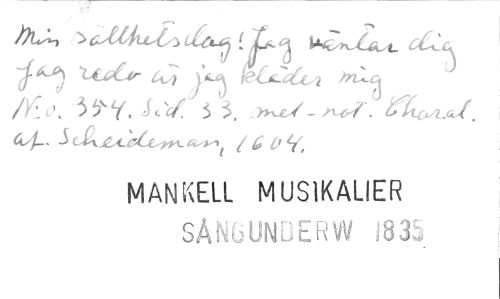 Min sällhetsdag! Jag väntar dig
Jag redo är jag kläder mig
N:o. 354. Sid. 33. met-not. Choral.
af. Scheideman, 1604.
MANKELL MUSIKALIER
SÅNGUNDERW 1835